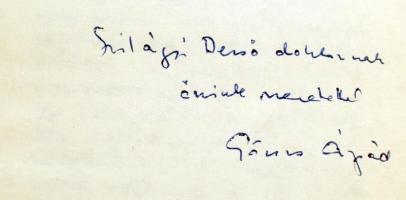 Szilágyi Dezső doktornak
őszinte szeretettel
Göncz Árpád